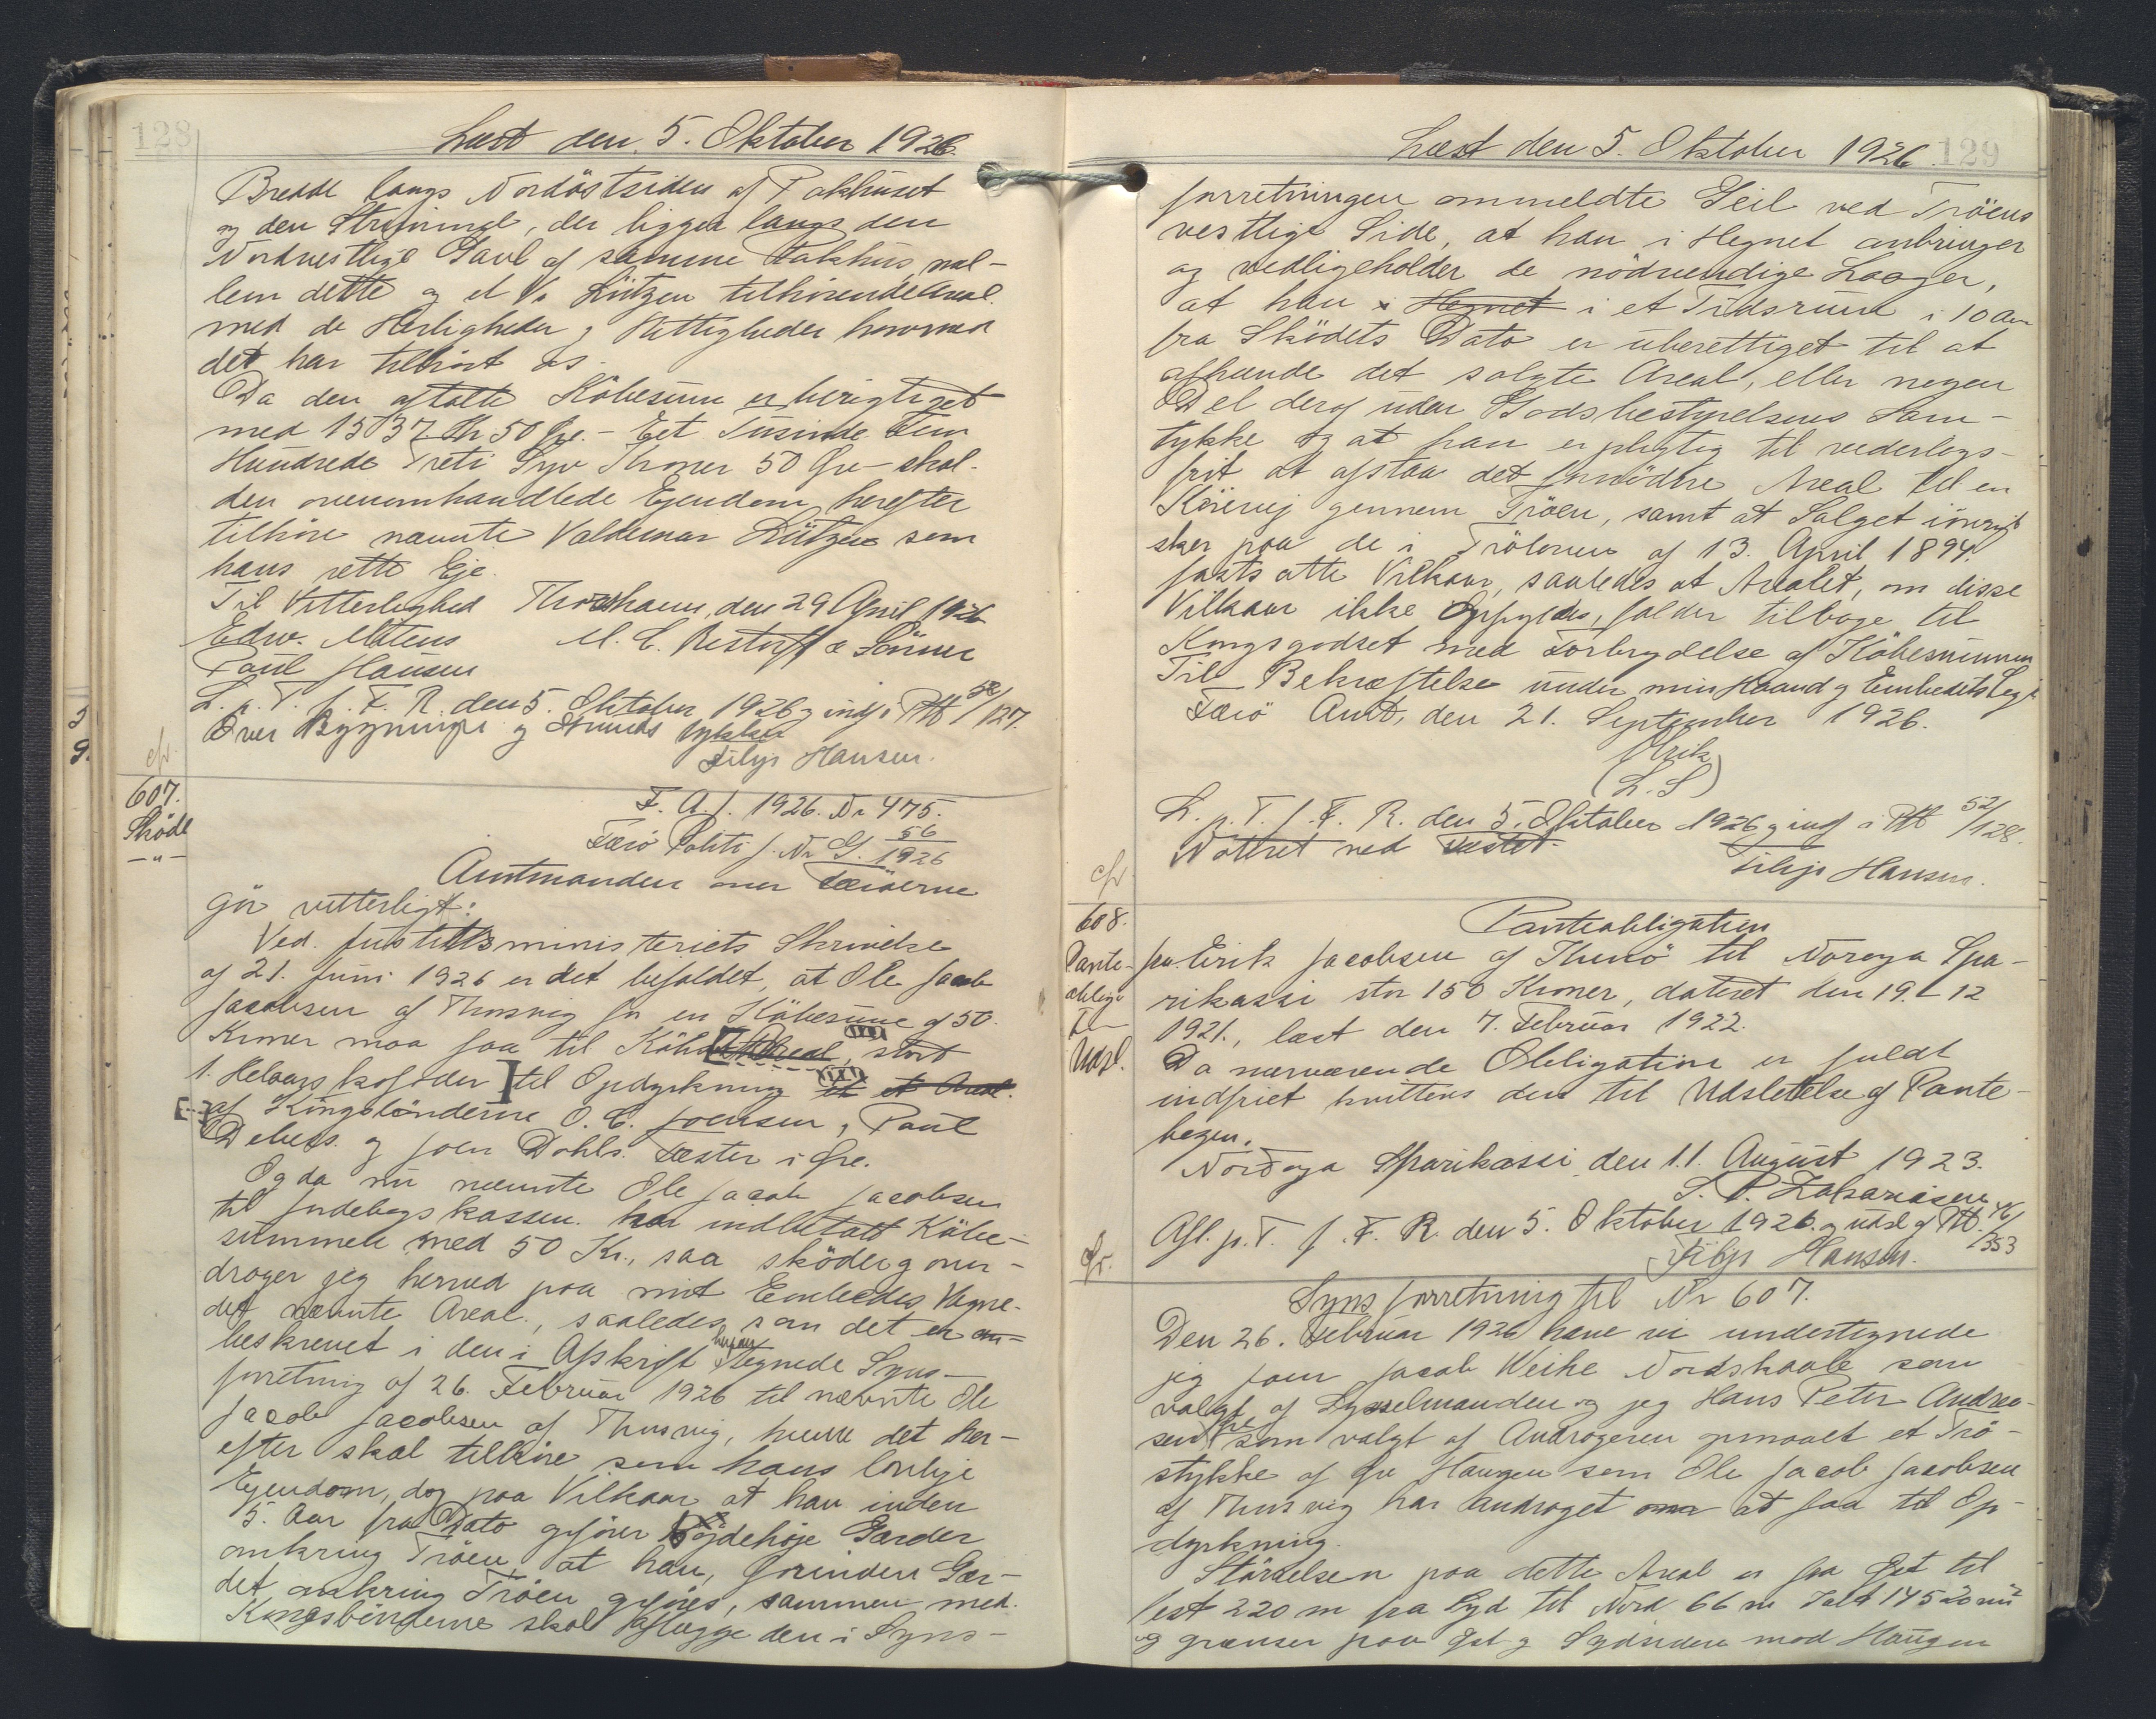 128
Læst den 5. Oktober 1926.
Bredde langs Nordöstsiden af Pakhuset
og den Strimmel, der ligger langs den
Nordvestlige Gavl af samme Pakhus, mel-
lem dette og et V. Lützen tilhörende Areal.
med de Herligheder og Rettigheder hvormed
det har tilhört os.
Da den aftalte Köbesum er berigtiget
med 1537 Kr 50 Öre. - Eet Tusinde Fem
Hundrede Treti Syv Kroner 50 Öre - skal
den ovenomhandlede Ejendom herefter
tilhöre nævnte Valdemar Lützen som
hans rette Eje.
Til Vitterlighed Thorshavn, den 29 April 1926
Edw. Mitens M. C. Restorff & Sönner
Poul Hansen
L. p. T. f. F. R. den 5. Oktober 1926 og indf i Ptb 52/127.
Over Bygninger og Grunds tykker
Filip Hansen.
cfr.
607.
Sköde
-"-
F. A. J. 1926. Nr 475.
Færö Politi J. Nr G. 56/1926
Amtmanden over Færöerne
gör vitterligt:
Ved Justitsministeriets Skrivelse
af 21. Juni 1926 er det befaldet, at Ole Jacob
Jacobsen af Thorsvig for en Köbesum af 50.
Kroner maa faa til Köb et Areal, stort
1. Helaars kofoder til Opdyrkning et Areal.
af Kongsbönderne O. C. Joensen, Paul
Debes. og Joen Dahls. Fæster i Öre.
Og da nu nævnte Ole Jacob Jacobsen
til Jordebogskassen har indbetalt Köbe-
summen med 50 Kr., saa sköder og over-
drager jeg herved paa mit Embedes Vegne
det nævnte Areal., saaledes som det er
beskrevet i den i Afskrift hosføj tegnede Syns-
forretning af 26. Februar 1926 til nævnte Ole
Jacob Jacobsen af Thorsvig, hvem det her-
efter skal tilhöre som hans lovlige
Ejendom, dog paa Vilkaar at han inden
5. Aar fra Dato opförer höjdehöje Gærder
omkring Tröen, at han, forinden Gær-
det omkring Tröen opföres, sammen med
Kongsbönderne skal aflægge den i Syns-
129
Læst den 5. Oktober 1926.
forretningen ommeldte Geil ved Tröens
vestlige Side, at han i Hegnet anbringer
og vedligeholder de nödvendige Laager,
at han i Hegnet i et Tidsrum i 10 Aar
fra Sködets Dato er uberettiget til at
afhænde det solgte Areal, eller nogen
Del deraf uden Godsbestyrelsens Sam-
tykke og at han er pligtig til vederlags-
frit at afstaa det fornödne Areal til en
Körevej gennem Tröen, samt at Salget iövrigt
sker paa de i Tröloven af 13. April 1894.
fastsatte Vilkaar, saaledes at Arealet, om disse
Vilkaar ikke Opfyldes, falder tilbage til
Kongsgodset med Forbrydelse af Köbesummen
Til Bekræftelse under min Haand og Embedets Segl
Færö Amt, den 21. September 1926.
(L. S)
L. p. T. f. F. R. den 5. Oktober 1926 og indf i Ptb 52/128.
Noteret ved Fæstet.
Filip Hansen.
cfr.
608.
Pante-
obliga
Udsl.
Panteobligation
fra Erik Jacobsen af Kunö til Noroya Spa-
rikassi stor 150 Kroner, dateret den 19. - 12
1921., læst den 7. Februar 1922.
Da nærværende Obligation er fuldt
indfriet kvitteres den til Udslettelse af Pante-
bogen.
Nordoya Sparikassi den 11. August 1923.
S. P. Zakariasen
Afl. p. T. f. F. R. den 5. Oktober 1926. og udsl af Ptb. 46/353
Filip Hansen.
Synsforretning til Nr 607.
Den 26. Februar 1926 have vi undertegnede
jeg Joen Jacob Weihe Nordskaale som
valgt af Sysselmanden og jeg Hans Peter Andrea-
sen Öre som valgt af Andrageren opmaalt et Trö-
stykke af Öre Haugen som Ole Jacob Jacobsen
af Thorsvig har andraget om at faa til Op-
dyrkning.
Störrelsen paa dette Areal er fra Öst til
Vest 220 m fra Syd til Nord 66 m Ialt 14520 m²
og grænser paa Öst og Sydsiden mod Haugen